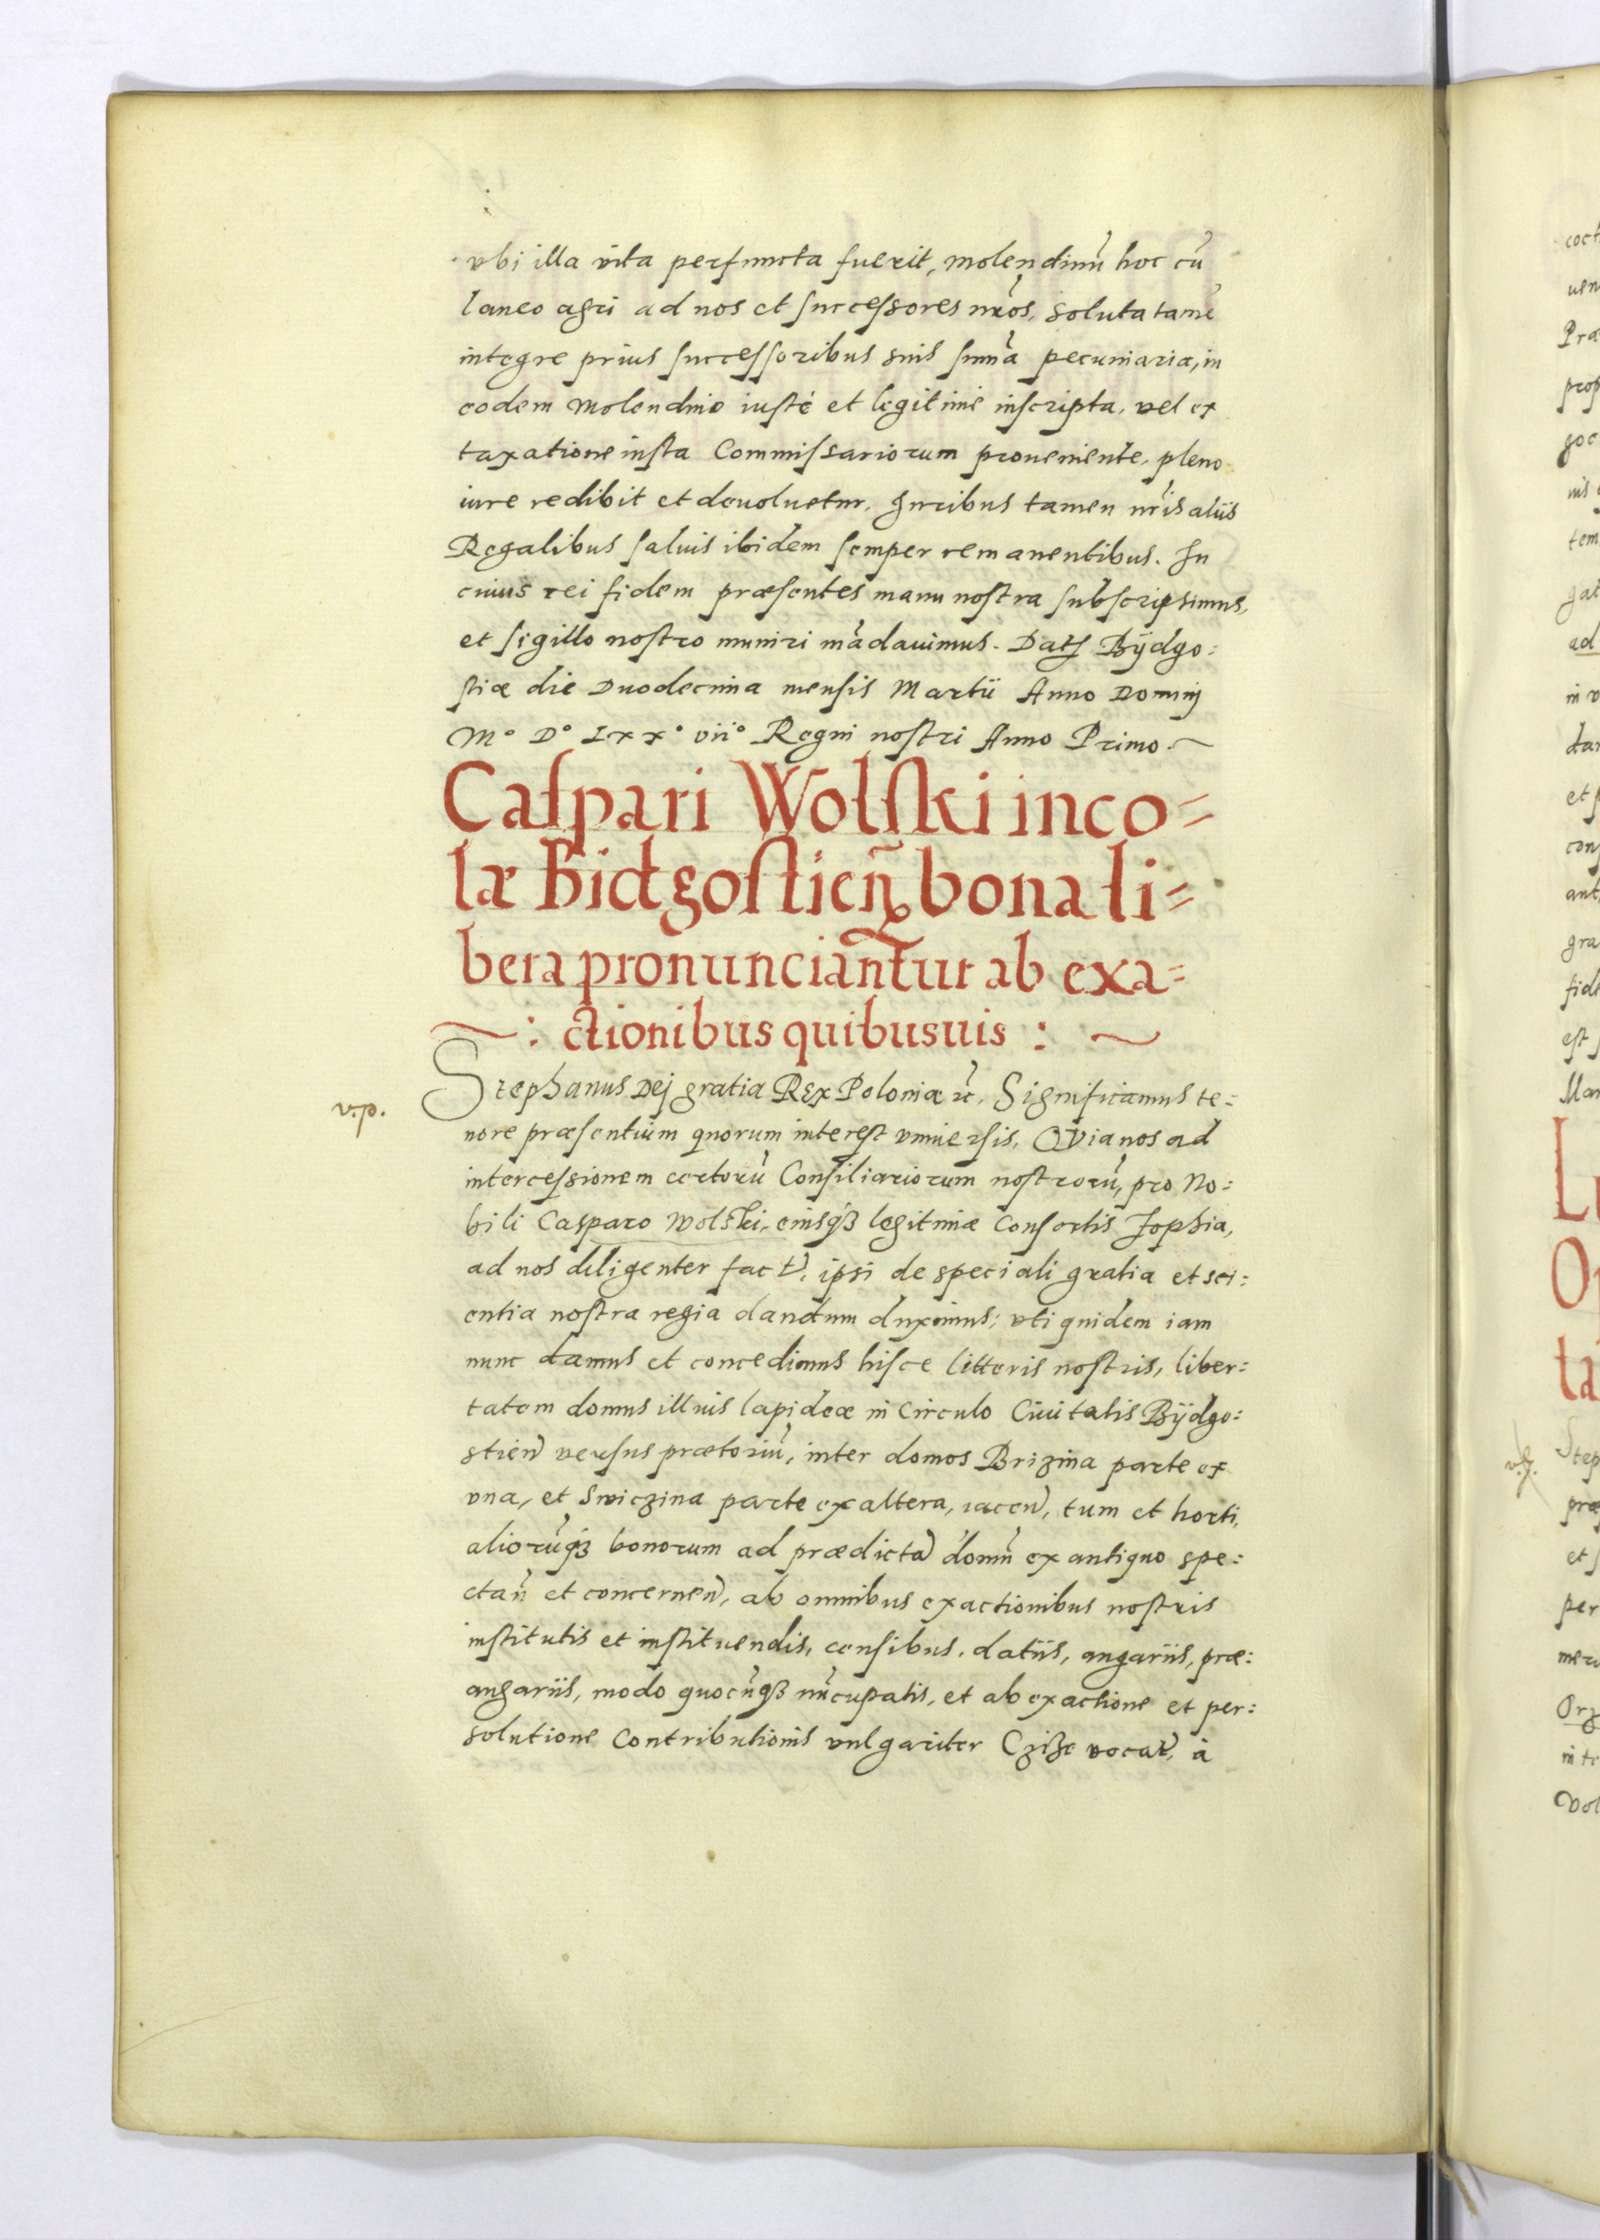 vbi illa vita perfuncta fuerit, molendinũ hoc cũ
laneo agri ad nos et successores nr̃os, soluta tamẽ
integre prius successoribus suis summ̃a pecuniaria, in
eodem molendino iustè et legitime inscripta, vel ex
taxatione iusta Commissariorum proueniente, pleno
iure redibit et deuoluetur. Iuribus tamen nr̃is aliis
Regalibus saluis ibidem semper remanentibus. In
cuius rei fidem præsentes manu nostra subscripsimus,
et sigillo nostro muniri mãdauimus. Datꝭ Bÿdgo:
stiæ die Duodecima mensis Martii Anno Dominj
M° D° Lxx° vii° Regni nostri Anno Primo.
Caspari Wolski inco=
læ Bidgostieñ bona li=
bera pronunciantur ab exa=
: ctionibus quibusuis :
v.p.
Stephanus Dej gratia Rex Poloniæ ꝛc̃. Significamus te:
nore præsentium quorum interest vniuersis, Quia nos ad
intercessionem certorũ Consiliariorum nostrorũ, pro No:
bili Casparo Wolski, eiusqꝫ legitimæ Consortis Zophia,
ad nos diligenter fact̃, ipsi de speciali gratia et sci:
entia nostra regia dandum duximus; vti quidem iam
nunc damus et concedimus hisce litteris nostris, liber:
tatem domus illius lapideæ in Circulo Ciuitatis Bÿdgo:
stieñ versus prætoriũ, inter domos Brizina parte ex
vna, et Swiczina parte ex altera, iaceñ, tum et horti,
aliorũqꝫ bonorum ad prædictã domũ ex antiquo spe:
ctañ et concerneñ, ab omnibus exactionibus nostris
institutis et instituendis, censibus, datiis, angariis, præ:
angariis, modo quocũqꝫ nũcupatis, et ab exactione et per:
solutione Contributionis vulgariter Czize vocat̃, à